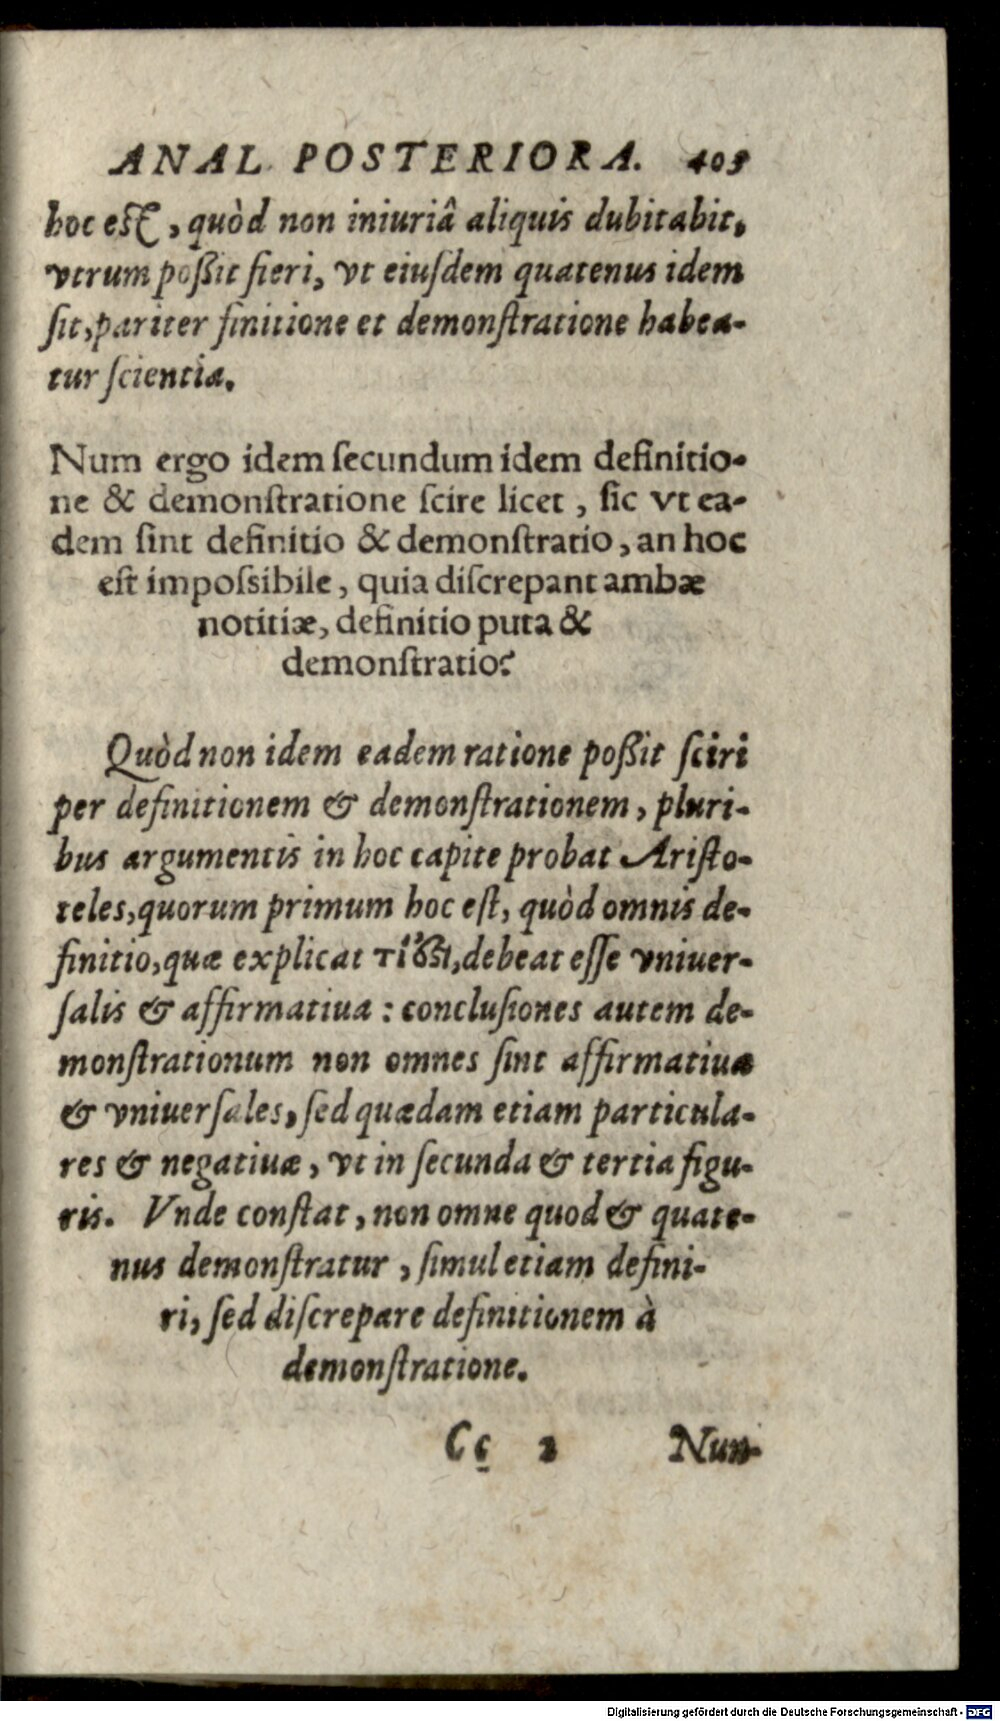 ANAL POSTERIORA. 403
hoc est, quòd non iniuriâ aliquis dubitabit,
vtrum poßit fieri, vt eiuſdem quatenus idem
ſit, pariter finitione et demonſtratione habea-
tur ſcientia.
Num ergo idem ſecundum idem definitio-
ne & demonſtratione ſcire licet, ſic vt ea-
dem ſint definitio & demonſtratio, an hoc
eſt impoſsibile, quia diſcrepant ambæ
notitiæ, definitio puta &
demonſtratio?
Quòd non idem eadem ratione poßit ſciri
per definitionem & demonſtrationem, pluri-
bus argumentis in hoc capite probat Ariſto-
teles, quorum primum hoc eſt, quòd omnis de-
finitio, quæ explicat τί ὅβι, debeat eſſe vniuer-
ſalis & affirmatiua: concluſiones autem de-
monſtrationum non omnes ſint affirmatiuæ
& vniuerſales, ſed quædam etiam particula-
res & negatiuæ, vt in ſecunda & tertia figu-
ris. Vnde conſtat, non omne quod & quate-
nus demonſtratur, ſimul etiam defini-
ri, ſed diſcrepare definitionem à
demonſtratione.
Cc 2 Nun-
Digitalisierung gefördert durch die Deutsche Forschungsgemeinschaft - DFG